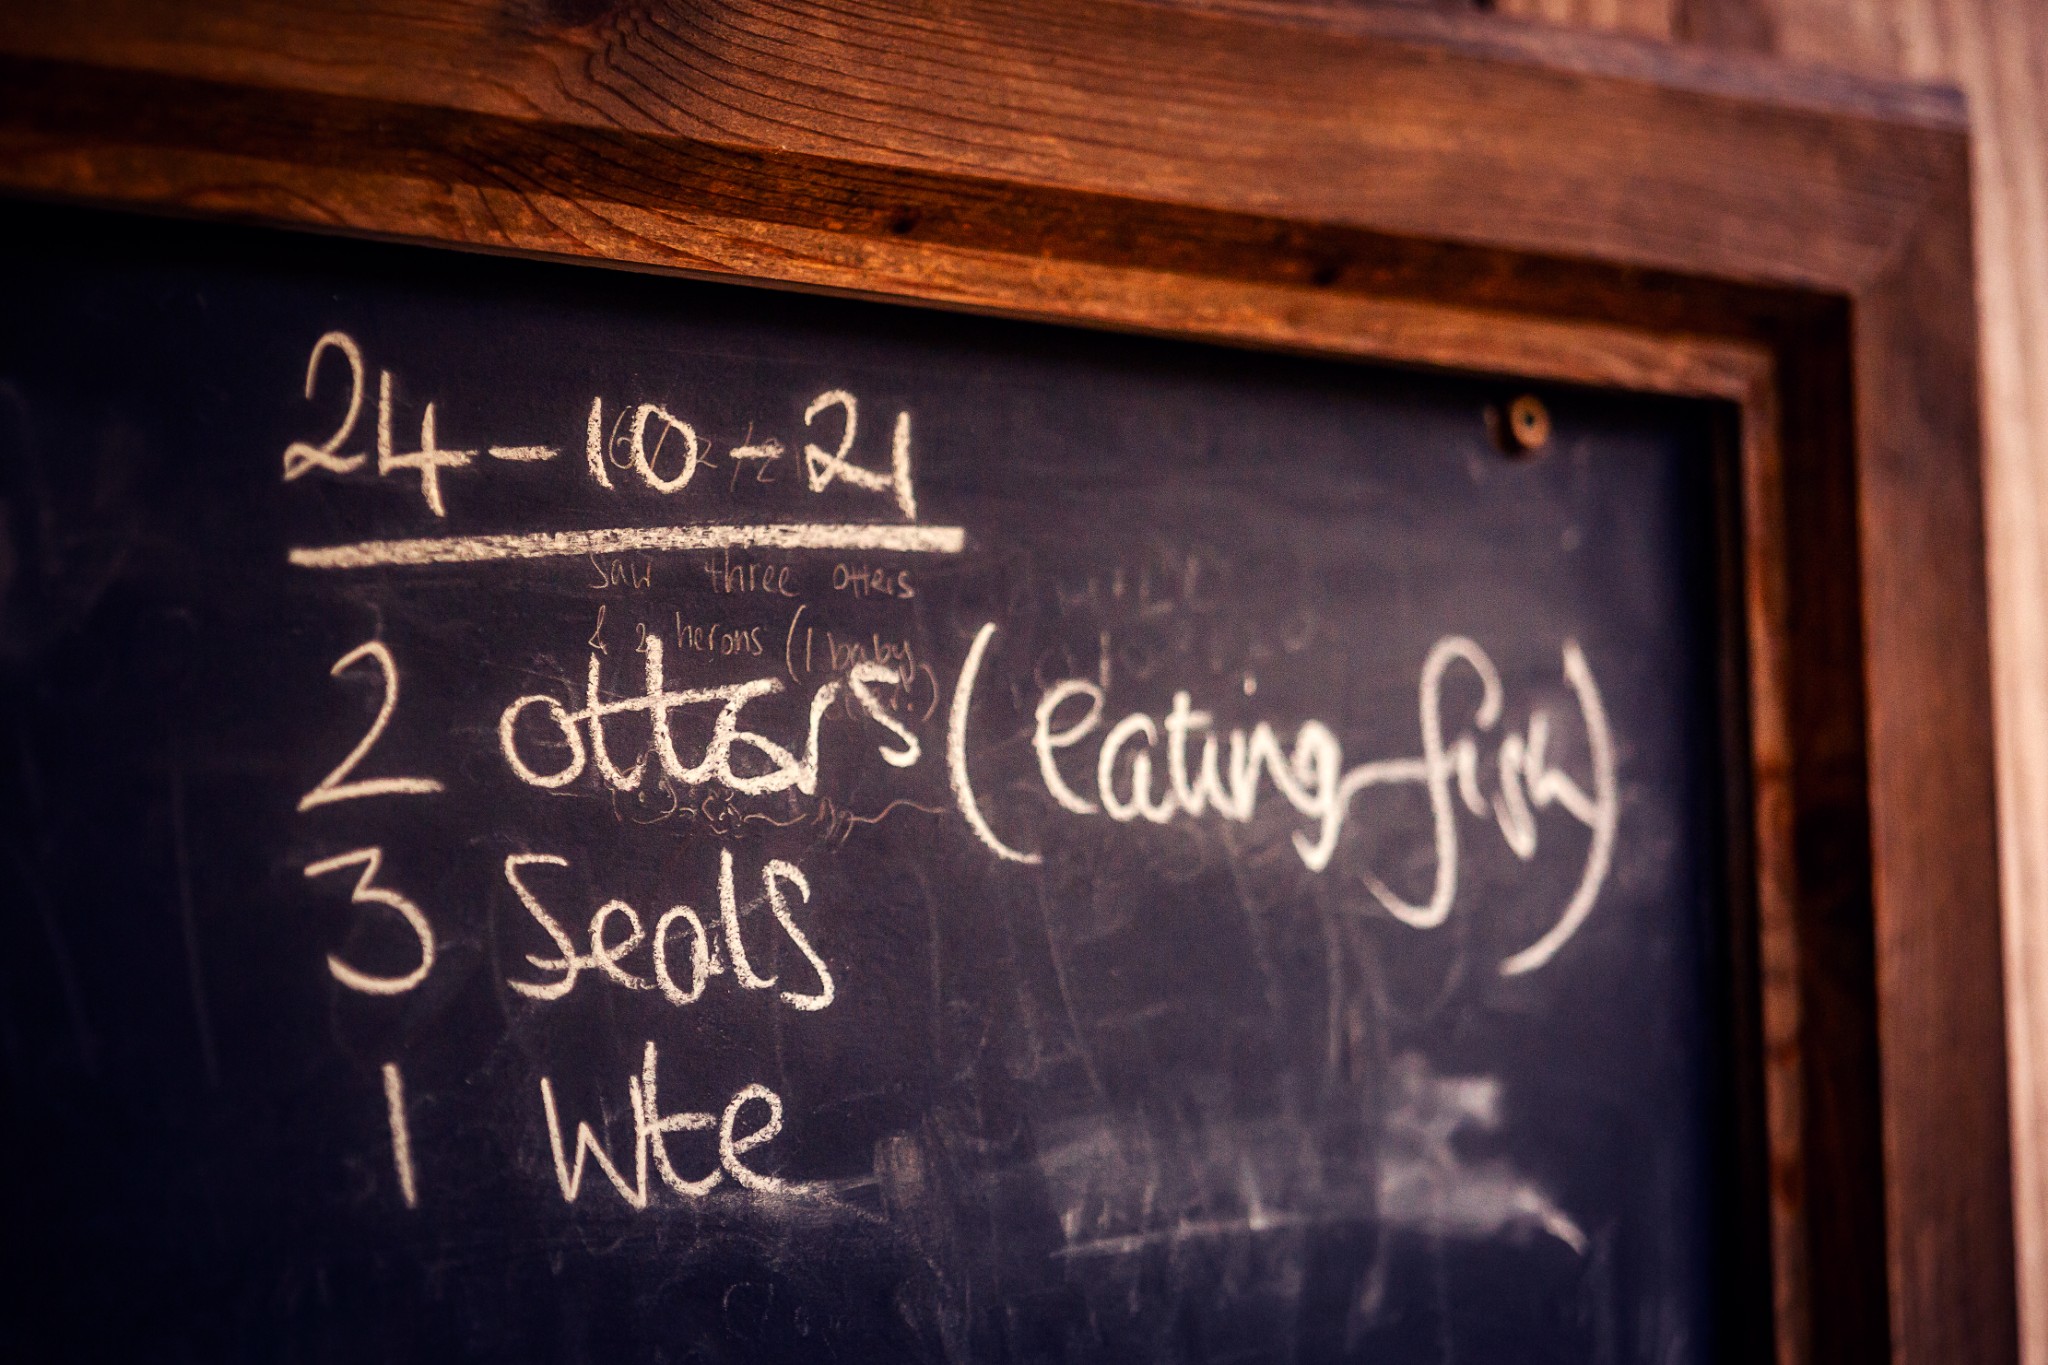 24-10-21
saw three otters
& 2 herons (1 baby
2 otters (eating fish)
3 Seals
1 wte